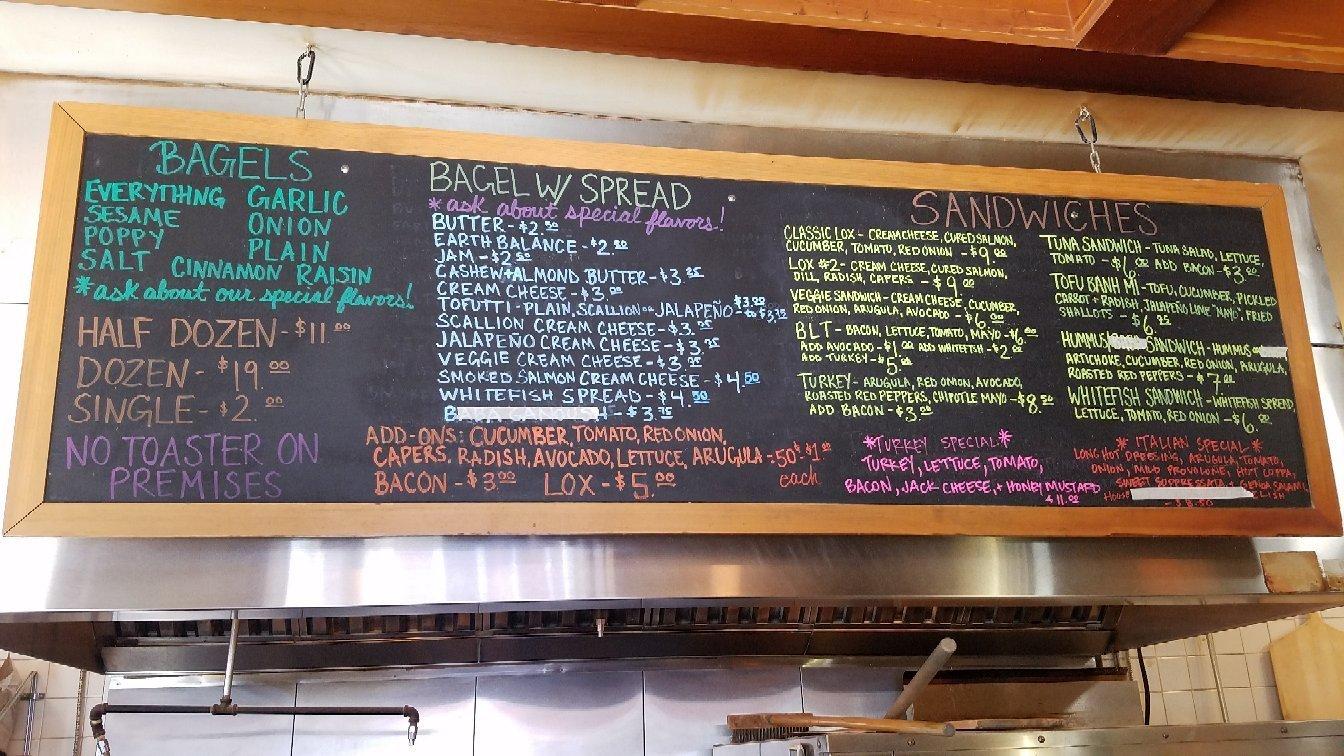 BAGELS
EVERYTHING GARLIC
SESAME ONION
POPPY PLAIN
SALT CINNAMON RAISIN
*ask about our special flavors!
HALF DOZEN - $11.00
DOZEN - $19.00
SINGLE - $2.00
NO TOASTER ON
PREMISES
BAGEL W/ SPREAD
*ask about special flavors!
BUTTER - $2.50
EARTH BALANCE - $2.50
JAM - $2.50
CASHEW + ALMOND BUTTER - $3.25
CREAM CHEESE - $3.00
TOFUTTI - PLAIN, SCALLION OR JALAPEÑO - $3.00 to $3.75
SCALLION CREAM CHEESE - $3.75
JALAPEÑO CREAM CHEESE - $3.75
VEGGIE CREAM CHEESE - $3.75
SMOKED SALMON CREAM CHEESE - $4.50
WHITEFISH SPREAD - $4.50
- $3.75
ADD-ONS: CUCUMBER, TOMATO, RED ONION,
CAPERS, RADISH, AVOCADO, LETTUCE, ARUGULA - 50¢ $1.00
each
BACON - $3.00 LOX - $5.00
SANDWICHES
CLASSIC LOX - CREAM CHEESE, CURED SALMON,
CUCUMBER, TOMATO, RED ONION - $9.00
LOX #2 - CREAM CHEESE, CURED SALMON,
DILL, RADISH, CAPERS - $9.00
VEGGIE SANDWICH - CREAM CHEESE, CUCUMBER,
RED ONION, ARUGULA, AVOCADO - $6.00
BLT - BACON, LETTUCE, TOMATO, MAYO - $6.00
ADD AVOCADO - $1.00 ADD WHITEFISH - $2.00
ADD TURKEY - $5.00
TURKEY - ARUGULA, RED ONION, AVOCADO,
ROASTED RED PEPPERS, CHIPOTLE MAYO - $8.50
ADD BACON - $3.00
*TURKEY SPECIAL*
TURKEY, LETTUCE, TOMATO,
BACON, JACK CHEESE, + HONEY MUSTARD
$11.00
TUNA SANDWICH - TUNA SALAD, LETTUCE,
TOMATO - $6.00 ADD BACON - $3.00
TOFU BANH MI - TOFU, CUCUMBER, PICKLED
CARROT + RADISH, JALAPEÑO LIME "MAYO", FRIED
SHALLOTS - $6.75
HUMMUS SANDWICH - HUMMUS
ARTICHOKE, CUCUMBER, RED ONION, ARUGULA,
ROASTED RED PEPPERS - $7.00
WHITEFISH SANDWICH - WHITEFISH SPREAD,
LETTUCE, TOMATO, RED ONION - $6.00
* ITALIAN SPECIAL *
LONG HOT DRESSING, ARUGULA, TOMATO,
ONION, MILD PROVOLONE, HOT COPPA,
SWEET SUPPRESSATA, + GENOA SALAMI
HOUSE
- $8.50